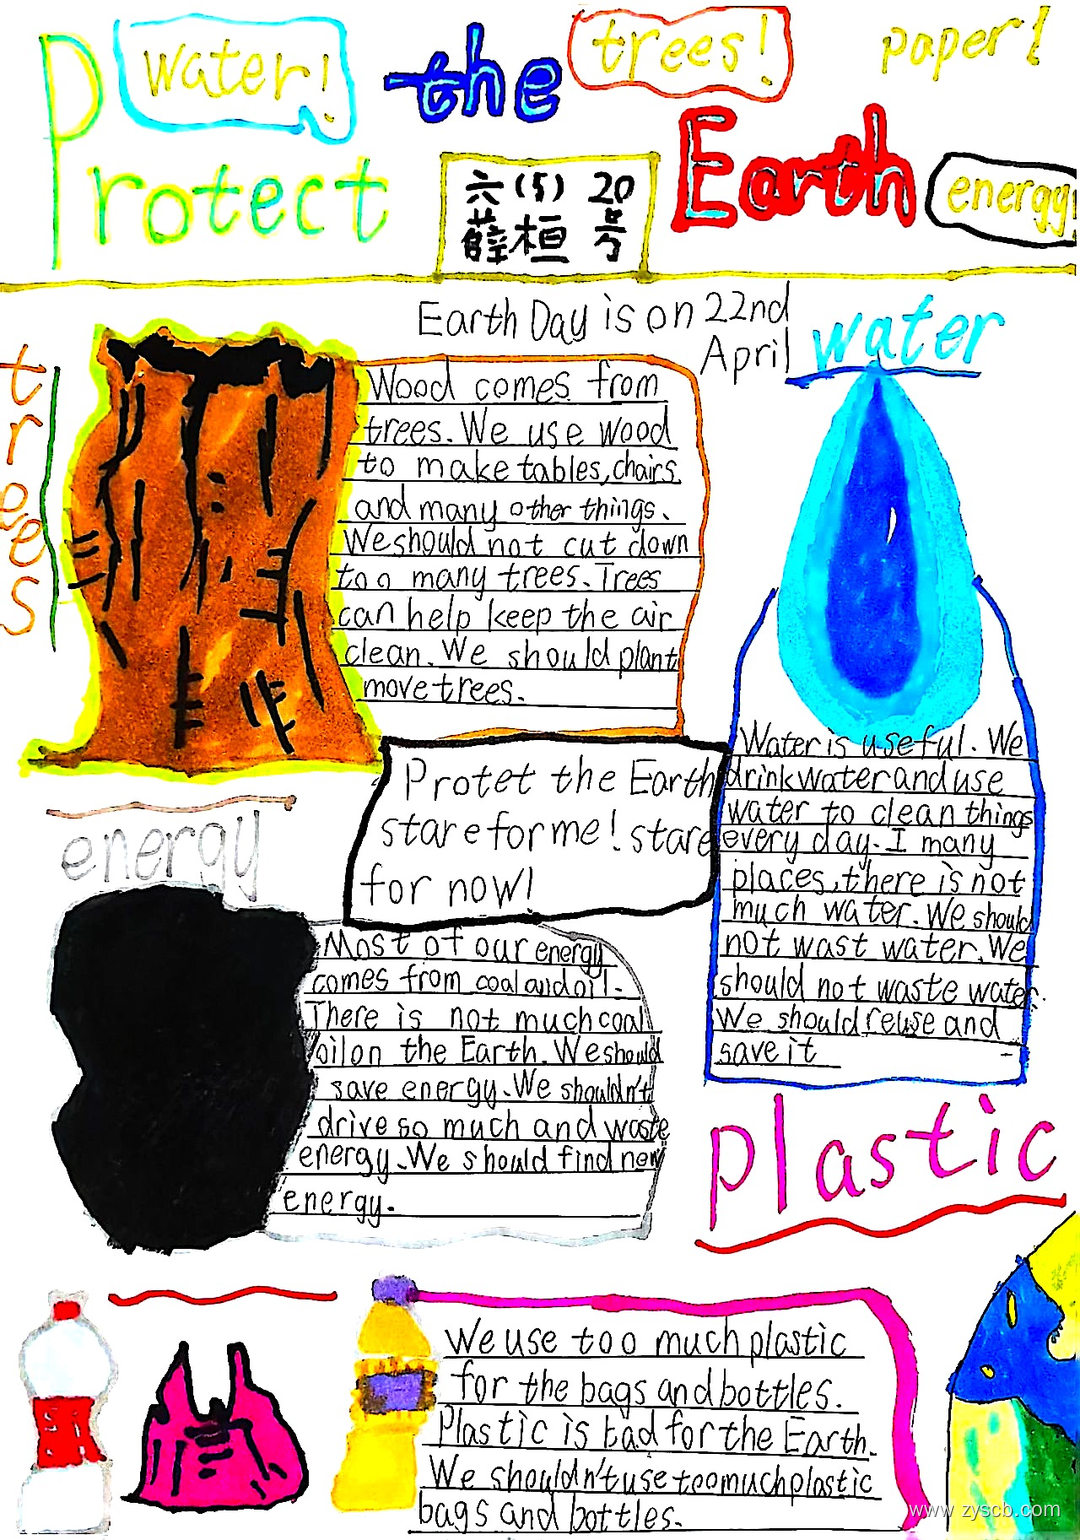 Protect the Earth
water!
trees!
paper!
energy!
六(5) 20
薛桓 号
Earth Day is on 22nd
April
trees
Wood comes from
trees. We use wood
to make tables, chairs.
and many other things.
We should not cut down
too many trees. Trees
can help keep the air
clean. We should plant
move trees.
water
Water is useful. We
drink water and use
water to clean things
every day. I many
places, there is not
much water. We should
not wast water. We
should not waste water.
We should reuse and
save it
Protet the Earth
stare for me! stare
for now!
energy
Most of our energy
comes from coal and oil.
There is not much coal
oil on the Earth. We should
save energy. We shouldn't
drive so much and waste
energy. We should find new
energy.
plastic
We use too much plastic
for the bags and bottles.
Plastic is bad for the Earth.
We shouldn't use too much plastic
bags and bottles.
www.zyscb.com